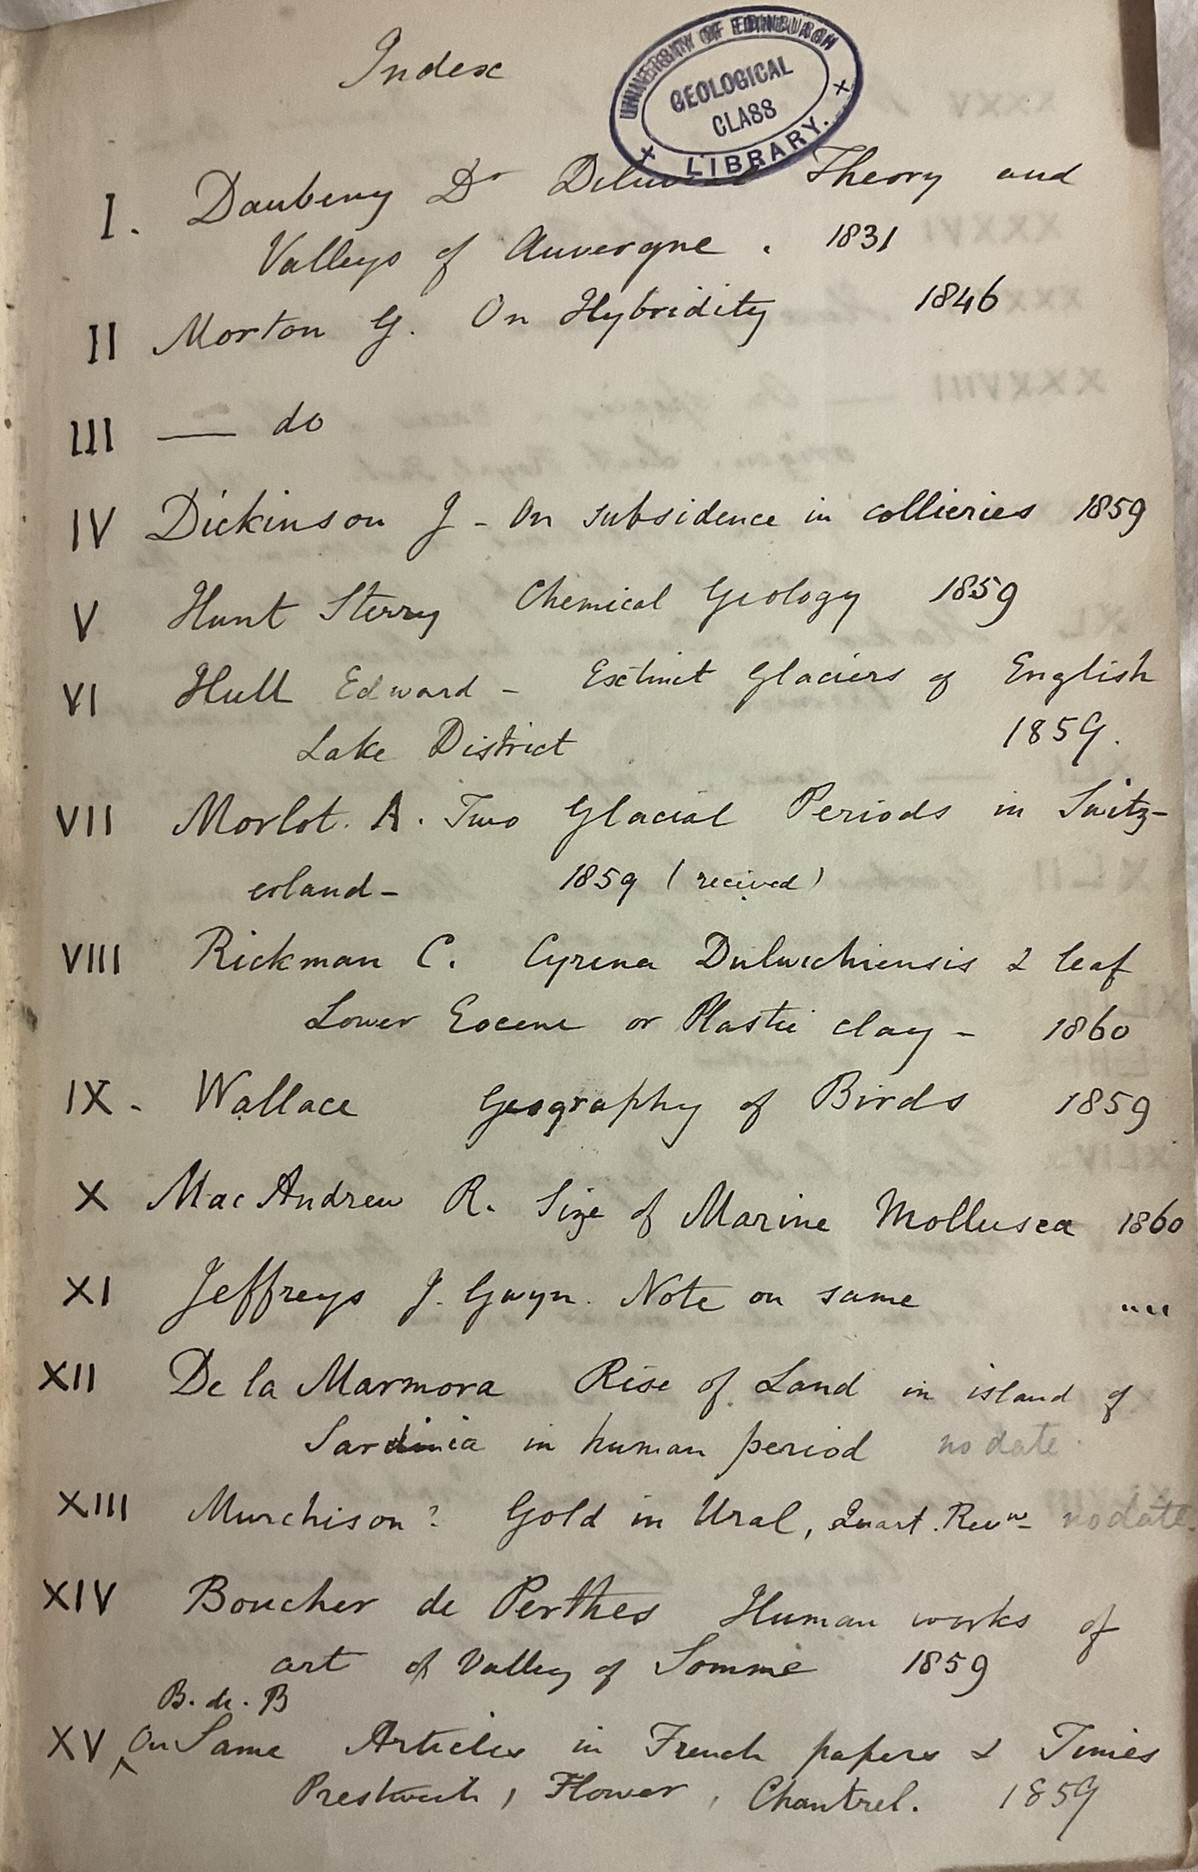 Index
UNIVERSITY OF EDINBURGH
GEOLOGICAL
CLASS
LIBRARY.
I. Daubeny Dr Diluvial Theory and
Valleys of Auvergne. 1831
II Morton G. On Hybridity 1846
III — do
IV Dickinson J - On subsidence in collieries 1859
V Hunt Sterry Chemical Geology 1859
VI Hull Edward - Extinct Glaciers of English
Lake District 1859.
VII Morlot. A. Two Glacial Periods in Switz-
erland - 1859 (recived)
VIII Rickman C. Cyrena Dulwichiensis & leaf
Lower Eocene or Plastic clay - 1860
IX. Wallace Geography of Birds 1859
X MacAndrew R. Size of Marine Mollusca 1860
XI Jeffreys J. Gwyn. Note on same ""
XII De la Marmora Rise of Land in island of
Sardinia in human period no date
XIII Murchison? Gold in Ural, Quart. Revw - no date
XIV Boucher de Perthes Human works of
art of Valley of Somme 1859
B. de. B
XV On Same Articles in French papers & Times
Prestwich, Flower, Chantrel. 1859